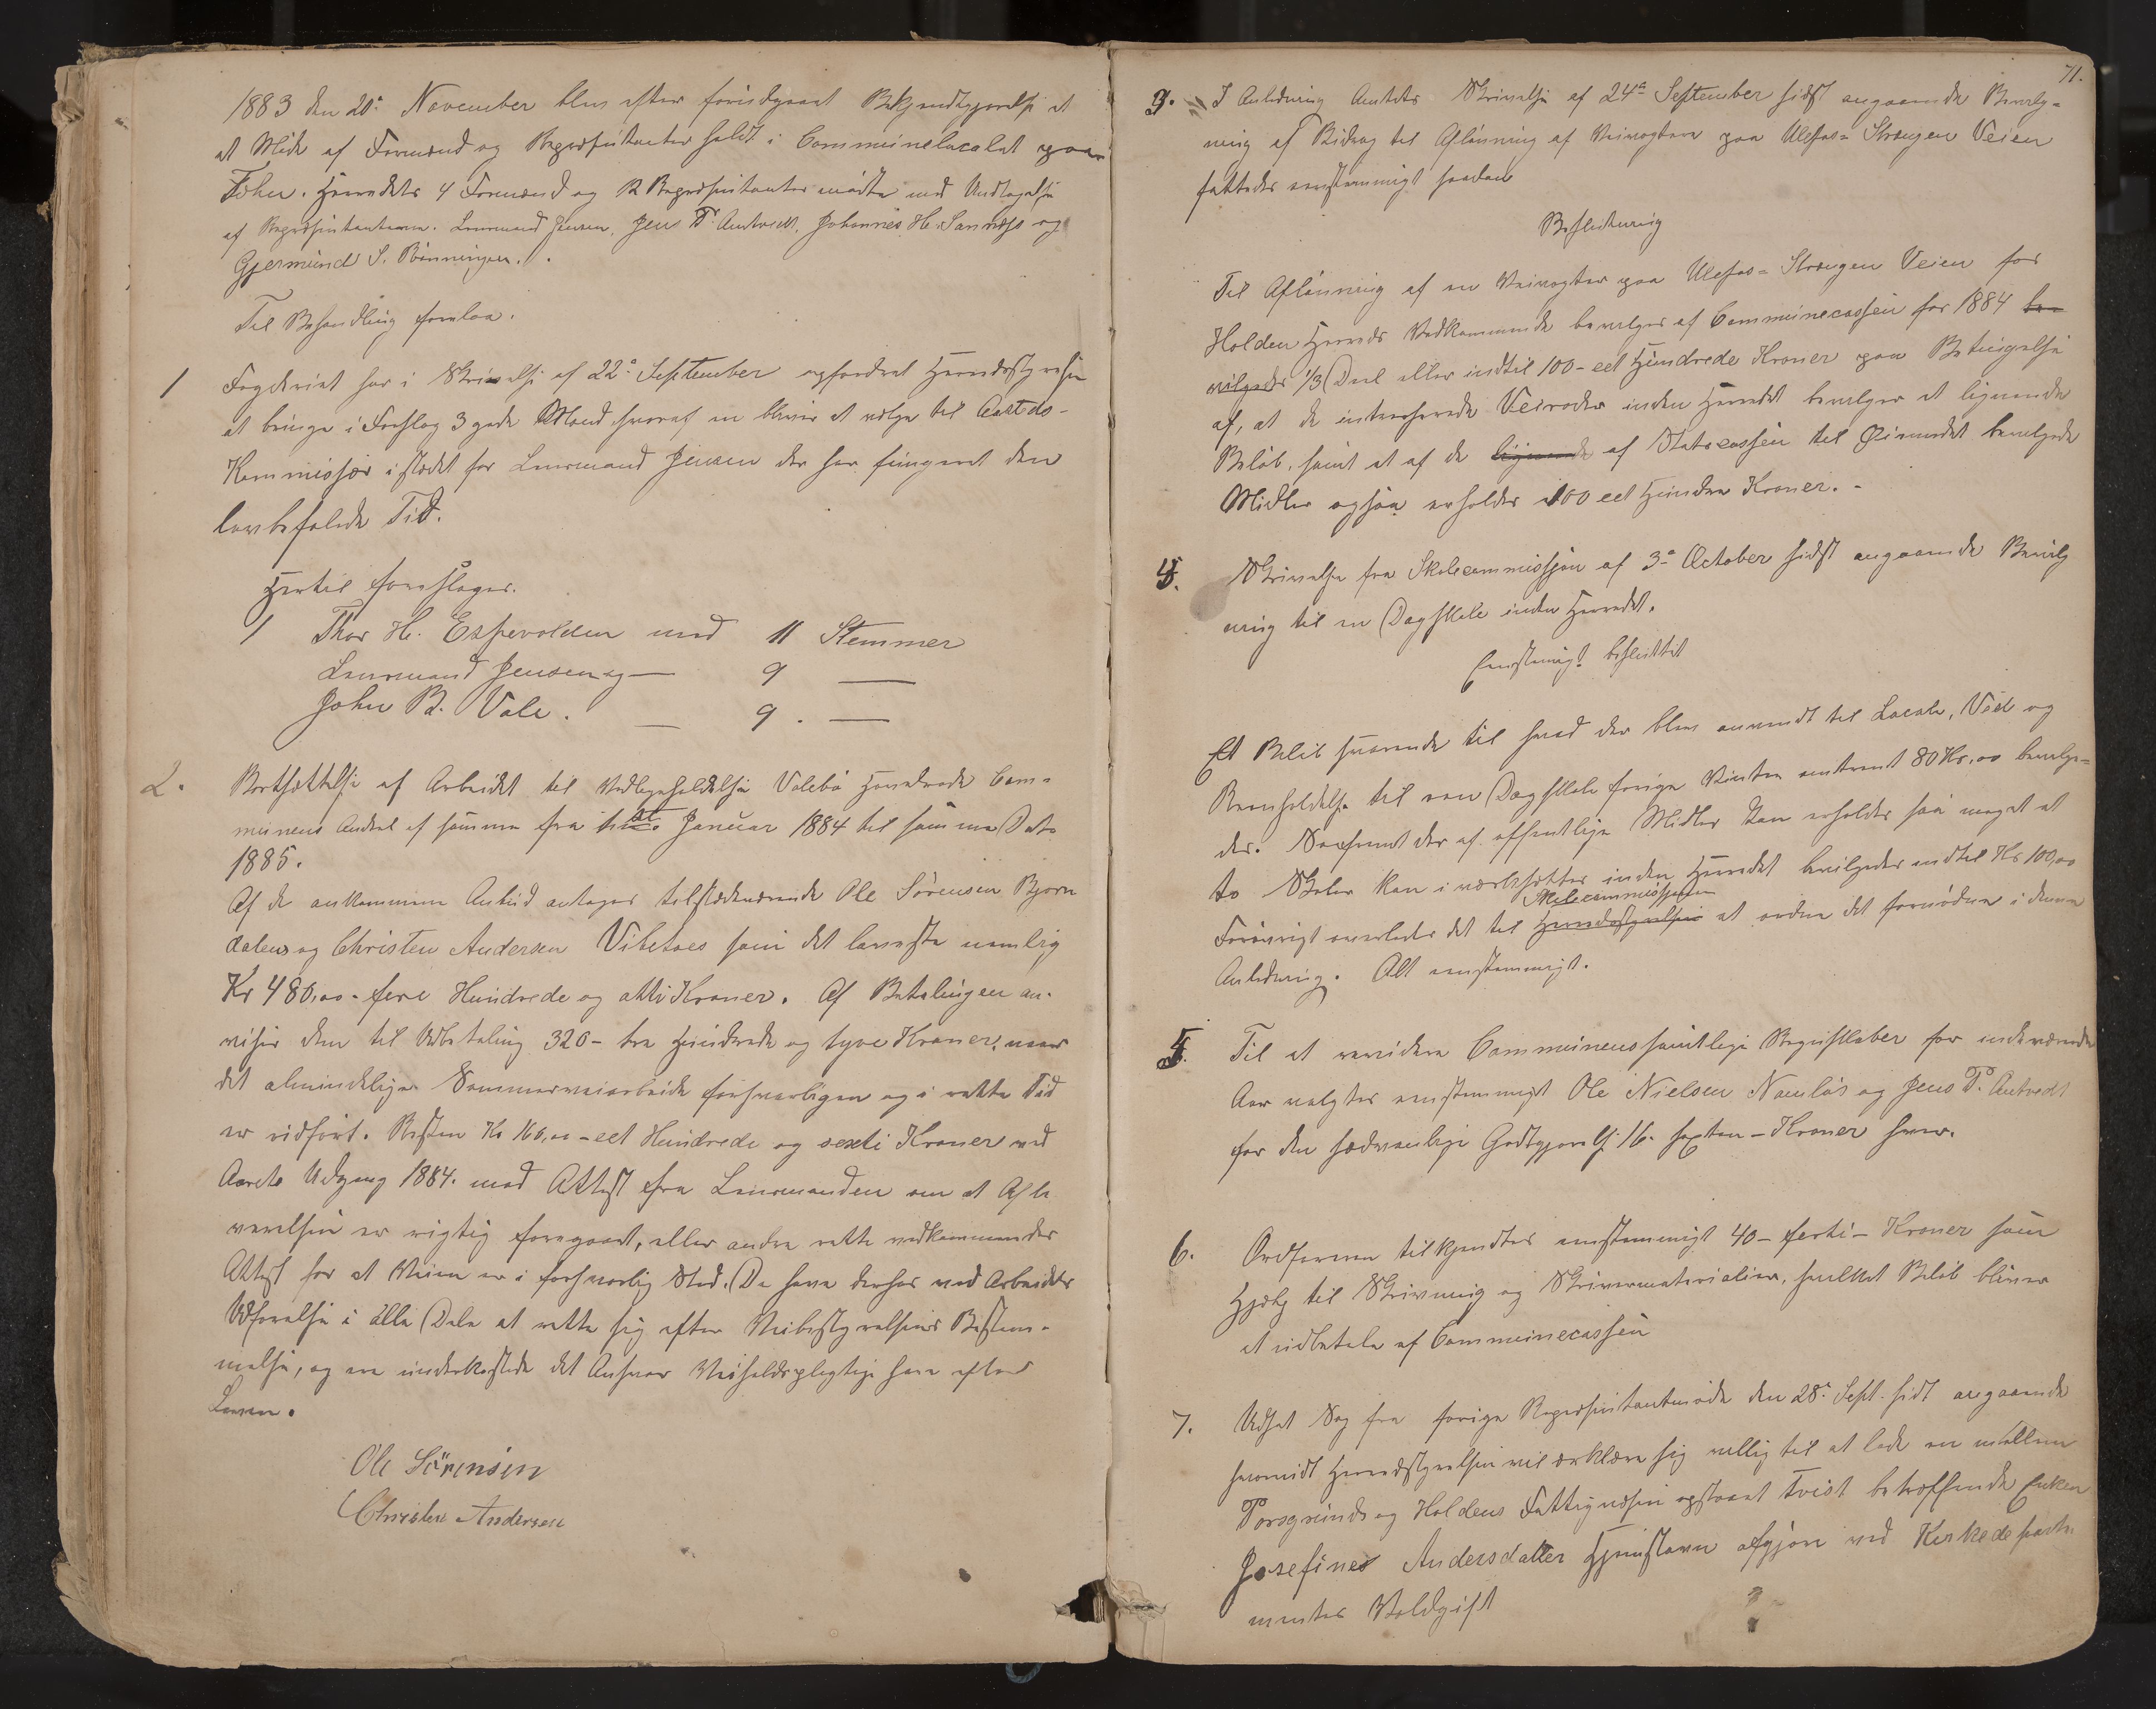 1883 den 20de November blev efter foriudgaaet Bekjendtgjørelse et
et Møde af Formænd og Repræsentanter holdt i Communelocalet paa
Fehn. Herredets 4 Formænd og 12 Repræsentanter mødte med Undtagelse
af Repræsentanterne. Lensmand Jensen, Jens P. Antvedt, Johannes H. Sannæss og
Gjermund S. Rønningen.
Til Behandling forelaa.
1 Fogderiet har i Skrivelse af 22de September opfordret Herredsstyrelsen
at bringe i Forslag 3 gode Mænd hvoraf en bliver at vælge til Aasteds-
Kommissær i stedet for Lensmand Jensen der har fungeret den
lovbefalede Tid.
Hertil foreslages.
1 Thor H. Espevolden med 11 Stemmer
Lensmand Jensen og — 9 —
John B. Vale. — 9. —
2. Bortsættelse af Arbeidet til Vedligeholdelse Valebø Hovedvode Com-
munens Andeel af samme fra 1st Januar 1884 til samme Dato
1885.
Af de ankommne Anbud antages tilstedeværende Ole Sørensen Bjorn
dalen og Christen Andersen Vibetoes som det laveste nemlig
Kr 480,00 - fire Hundrede og otti Kroner. Af Betalingen an-
vises dem til Udbetaling 320 - tre Hundrede og tyve Kroner, naar
det almindelige Sommerveiarbeide forsvarligen og i rette Tid
er udført. Resten Kr 160,00 - eet Hundrede og sexti Kroner ved
Aarets Udgang 1884. med Attest fra Lensmanden om at Afle
verelsen er rigtig foregaaet, eller andre rette vedkommendes
Attest for at Veien er i forsvarlig Stad. De have derhos ved Arbeidets
Udførelse i alle Dele at rette sig efter Veibestyrelsens Bestem-
melse, og ere underkastede det Ansvar Veiholdspligtige have efter
Loven.
Ole Sørensen
Christen Andersen
71.
3. I Anledning Amtets Skrivelse af 24de September sidst angaaende Bevilg-
ning af Bidrag til Aflønning af Veivogtere paa Ulefos-Strængen Veien
fattedes eenstemmigt saadan
Beslutning
Til Aflønning af en Veivogter paa Ulefos-Strængen Veien for
Holden Herreds Vedkommende bevilges af Communecassen for 1884 be-
vilgedes 1/3 Deel eller indtil 100 - eet Hundrede Kroner paa Betingelse
af, at de interesserede Veiroder inden Herredet bevilger et lignende
Beløb, samt at af de lignende af Statscassen til Øiemedet bevilgede
Midler ogsaa erholdes 100 eet Hundre Kroner. -
4. Skrivelse fra Skolecommissjon af 3de October sidst angaaende Bevilg
ning til en Dagskole inden Herredet.
Eenstemigt besluttet
Et Beløb svarende til hvad der blev anvendt til Locale, Ved og
Reenholdelse til een Dagskole forige Vinter omtrent 80 Kr,00 bevilge-
des. Saafremt der af offentlige Midler kan erholdes saa meget at
to Skoler kan iværksættes inden Herredet bevilgedes indtil Kr 100,00
Skolecommissjonen
Forøvrigt overlades det til Herredsstyrelsen at ordne det fornødne i denne
Anledning. Alt eenstemmigt.
5. Til at revidere Communens samtlige Regnskaber for indeværende
Aar valgtes eenstemmigt Ole Nielsen Namløs og Jens P. Antvedt
for den sædvanlige Godtgjørelse 16. sexten - Kroner hver.
6. Ordføreren tilkjendtes eenstemmigt 40 - førti - Kroner som
Hjælp til Skrivning og Skrivematerialier, hvilket Beløb bliver
at udbetale af Communecassen
7. Udsat Sag fra forige Repræsentantmøde den 28de Sept. sidst angaaende
hvorvidt Herredstyrelsen vil erklære sig villig til at lade en mellem
Porsgrunds og Holdens Fattigvæsen opstaaet Tvist betræffende Enken
Josefine Andersdatter Hjemstavn afgjøre ved Kirkedeparte
mentes Voldgift